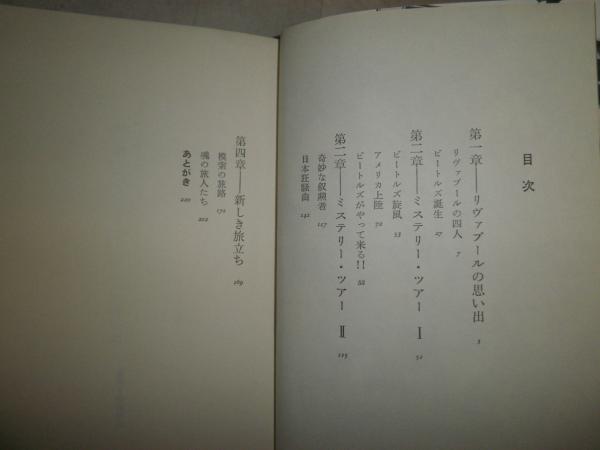 目次
第一章――リヴァプールの思い出 5
リヴァプールの四人 7
ビートルズ誕生 27
第二章――ミステリー・ツアー Ⅰ 51
ビートルズ旋風 53
アメリカ上陸 72
ビートルズがやって来る!! 88
第三章――ミステリー・ツアー Ⅱ 125
奇妙な叙勲者 127
日本狂騒曲 142
第四章――新しき旅立ち 169
模索の旅路 171
魂の旅人たち 202
あとがき 220